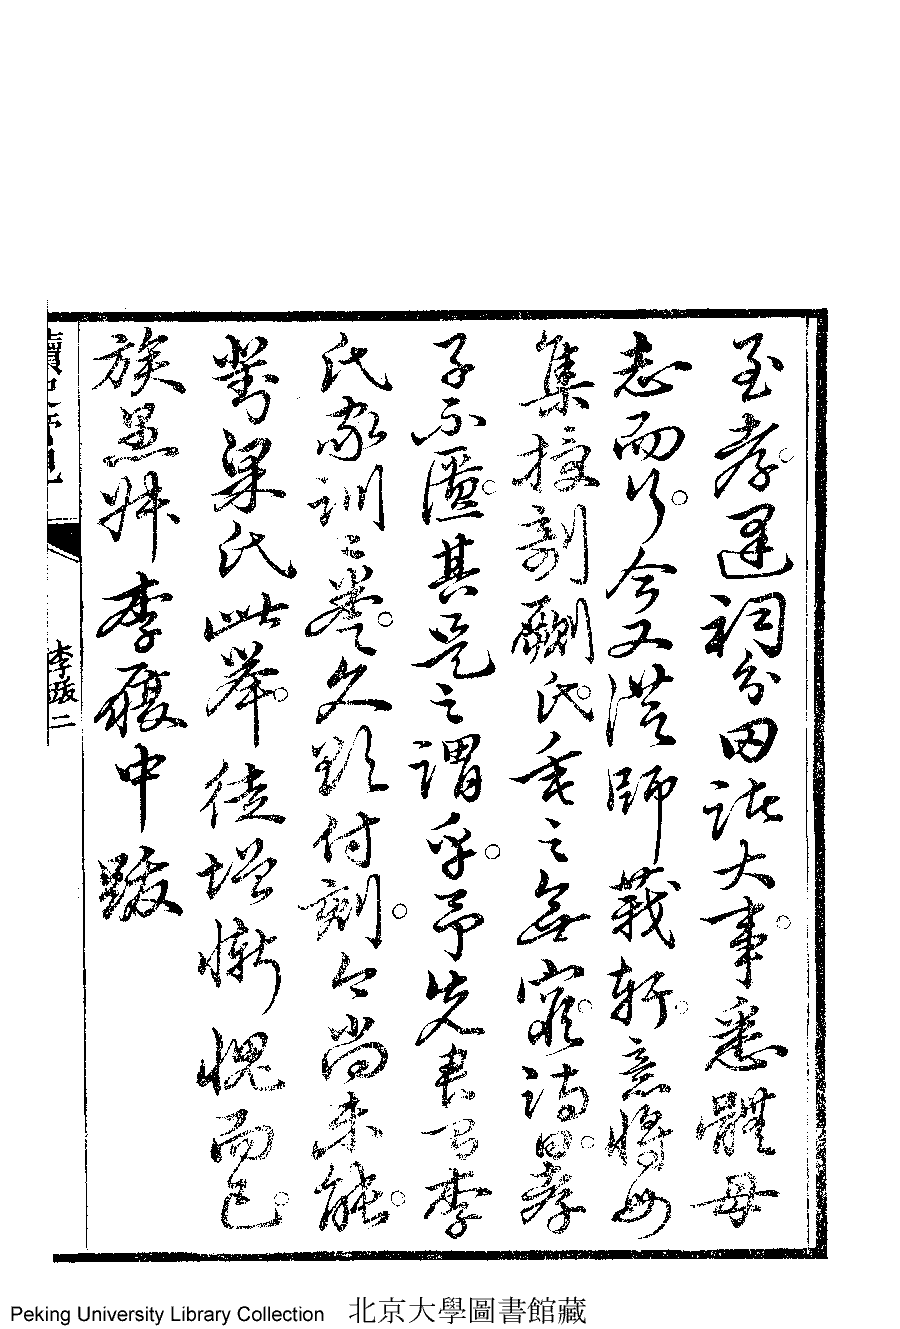 至孝。建祠分田諸大事。悉體母
志而行。今又從師莪軒。意將母
集授刻劂氏。垂之無窮。詩曰。孝
子不匱。其是之謂乎。予先李
氏家訓二卷。久欲付刻。今尚未能。
對梁氏此舉。徒增慚愧而已。
族愚妹李履中跋
李跋二
Peking University Library Collection 北京大學圖書館藏